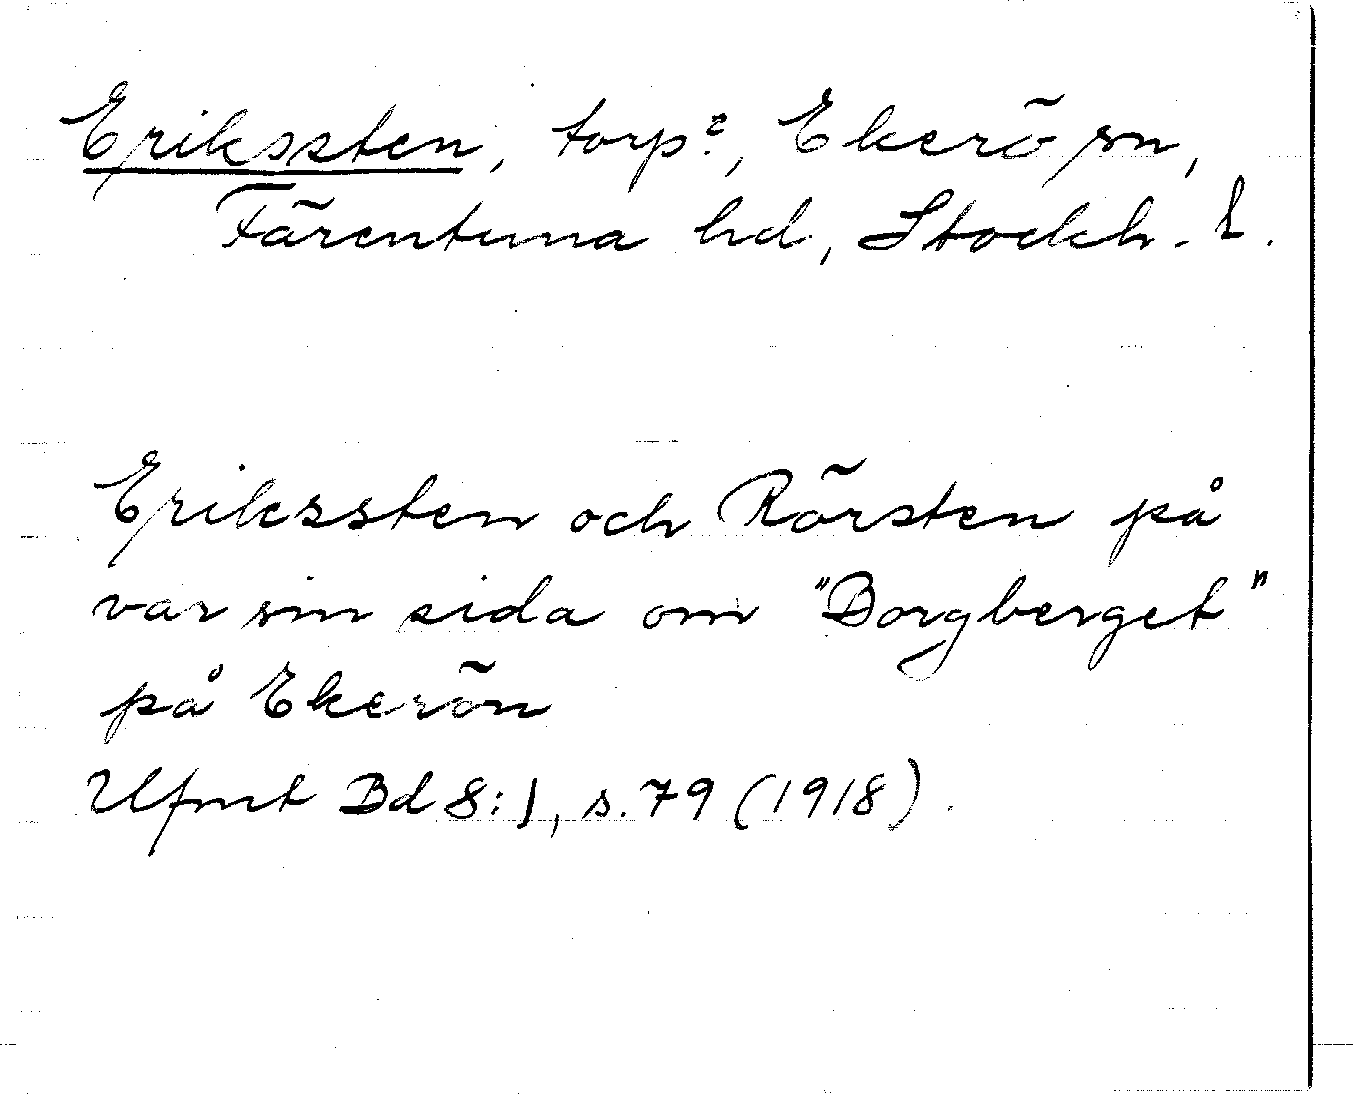 Erikssten, torp?, Ekerö sn,
Färentuna hd, Stockh. l.
Erikssten och Rörsten på
var sin sida om "Borgberget"
på Ekerön
Ufmt Bd 8:1, s. 79 (1918).